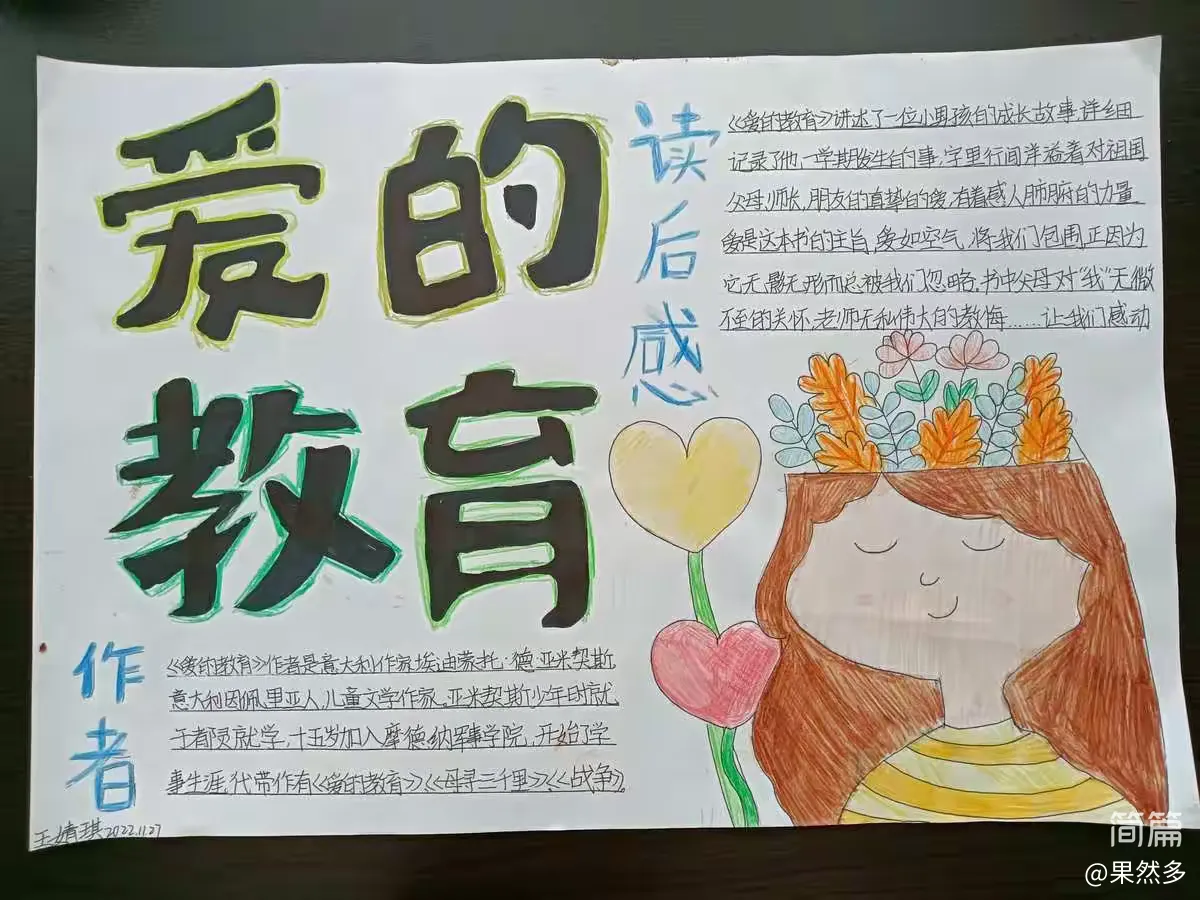 爱的
教育
读后感
《爱的教育》讲述了一位小男孩的成长故事,详细
记录了他一学期发生的事,字里行间洋溢着对祖国
父母师长,朋友的真挚的爱,有着感人肺腑的力量
爱是这本书的主旨,爱如空气,将我们包围,正因为
它无影无形而总被我们忽略.书中父母对“我”无微
不至的关怀,老师无私伟大的教悔……让我们感动
作者
《爱的教育》作者是意大利作家埃迪蒙托·德·亚米契斯
意大利因佩里亚人,儿童文学作家。亚米契斯少年时就
于都灵就学,十五岁加入摩德纳军事学院,开始了学
事生涯,代带作有《爱的教育》《母寻三千里》《战争》。
王婧琪2022.11.27
简篇
@果然多